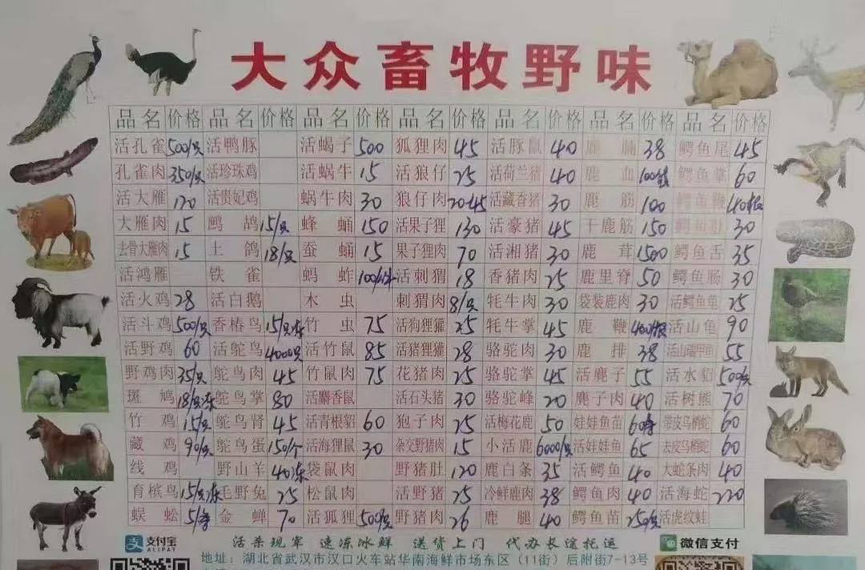 大众畜牧野味
品名 价格 品名 价格 品名 价格 品名 价格 品名 价格 品名 价格 品名 价格
活孔雀 500/只 活鸭豚 活蝎子 500 狐狸肉 45 活豚鼠 40 鹿 38 鳄鱼尾 45
孔雀肉 350/只 活珍珠鸡 活蜗牛 15 活狼仔 25 活荷兰猪 40 鹿血 鳄鱼掌 60
活大雁 120 活贵妃鸡 蜗牛肉 30 狼仔肉 20-45 活藏香猪 30 鹿筋 100 鳄鱼
大雁肉 15 鹧鸪 15/只 蜂蛹 150 活果子狸 130 活豪猪 45 干鹿筋 150 鳄鱼肚 30
去骨大雁肉 15 土鸽 18/只 蚕蛹 15 果子狸肉 70 活湘猪 30 鹿茸 1500 鳄鱼舌 35
活鸿雁 铁雀 蚂蚱 活刺猬 18 香猪肉 25 鹿里脊 50 鳄鱼肠 30
活火鸡 28 活白鹅 木虫 刺猬肉 8/只 牦牛肉 30 袋装鹿肉 30 活鳄鱼龟 25
活斗鸡 500/只 香椿鸟 竹虫 75 活狗狸獾 25 牦牛掌 45 鹿鞭 活山鱼 90
活野鸡 60 活鸵鸟 4000只 活竹鼠 85 活猪狸獾 28 骆驼肉 30 鹿排 38 55
野鸡肉 35/只 鸵鸟肉 45 竹鼠肉 75 花猪肉 25 骆驼掌 45 活麂子 55 活水貂 500/只
斑鸠 鸵鸟掌 80 活麝香鼠 活石头猪 30 骆驼峰 20 麂子肉 40 活树熊 70
竹鸡 15/只 鸵鸟肾 45 活青根貂 60 狍子肉 25 活梅花鹿 50 娃娃鱼苗 60
藏鸡 90/只 鸵鸟蛋 150/个 活海狸鼠 30 杂交野猪肉 15 小活鹿 6000/只 活娃娃鱼 65 60
线鸡 野山羊 40 袋鼠肉 野猪肚 120 鹿白条 35 活鳄鱼 40 大蛇条肉 40
育槟鸟 毛野兔 25 松鼠肉 活野猪 25 冷鲜鹿肉 38 鳄鱼肉 40 活海蛇 220
蜈蚣 金蝉 70 活狐狸 500/只 野猪肉 26 鹿腿 40 鳄鱼苗 250/只 活虎纹蛙
支付宝 ALIPAY 活杀现宰 速冻冰鲜 送货上门 代办长途托运 微信支付
地址：湖北省武汉市汉口火车站华南海鲜市场东区（11街）后附街7-13号